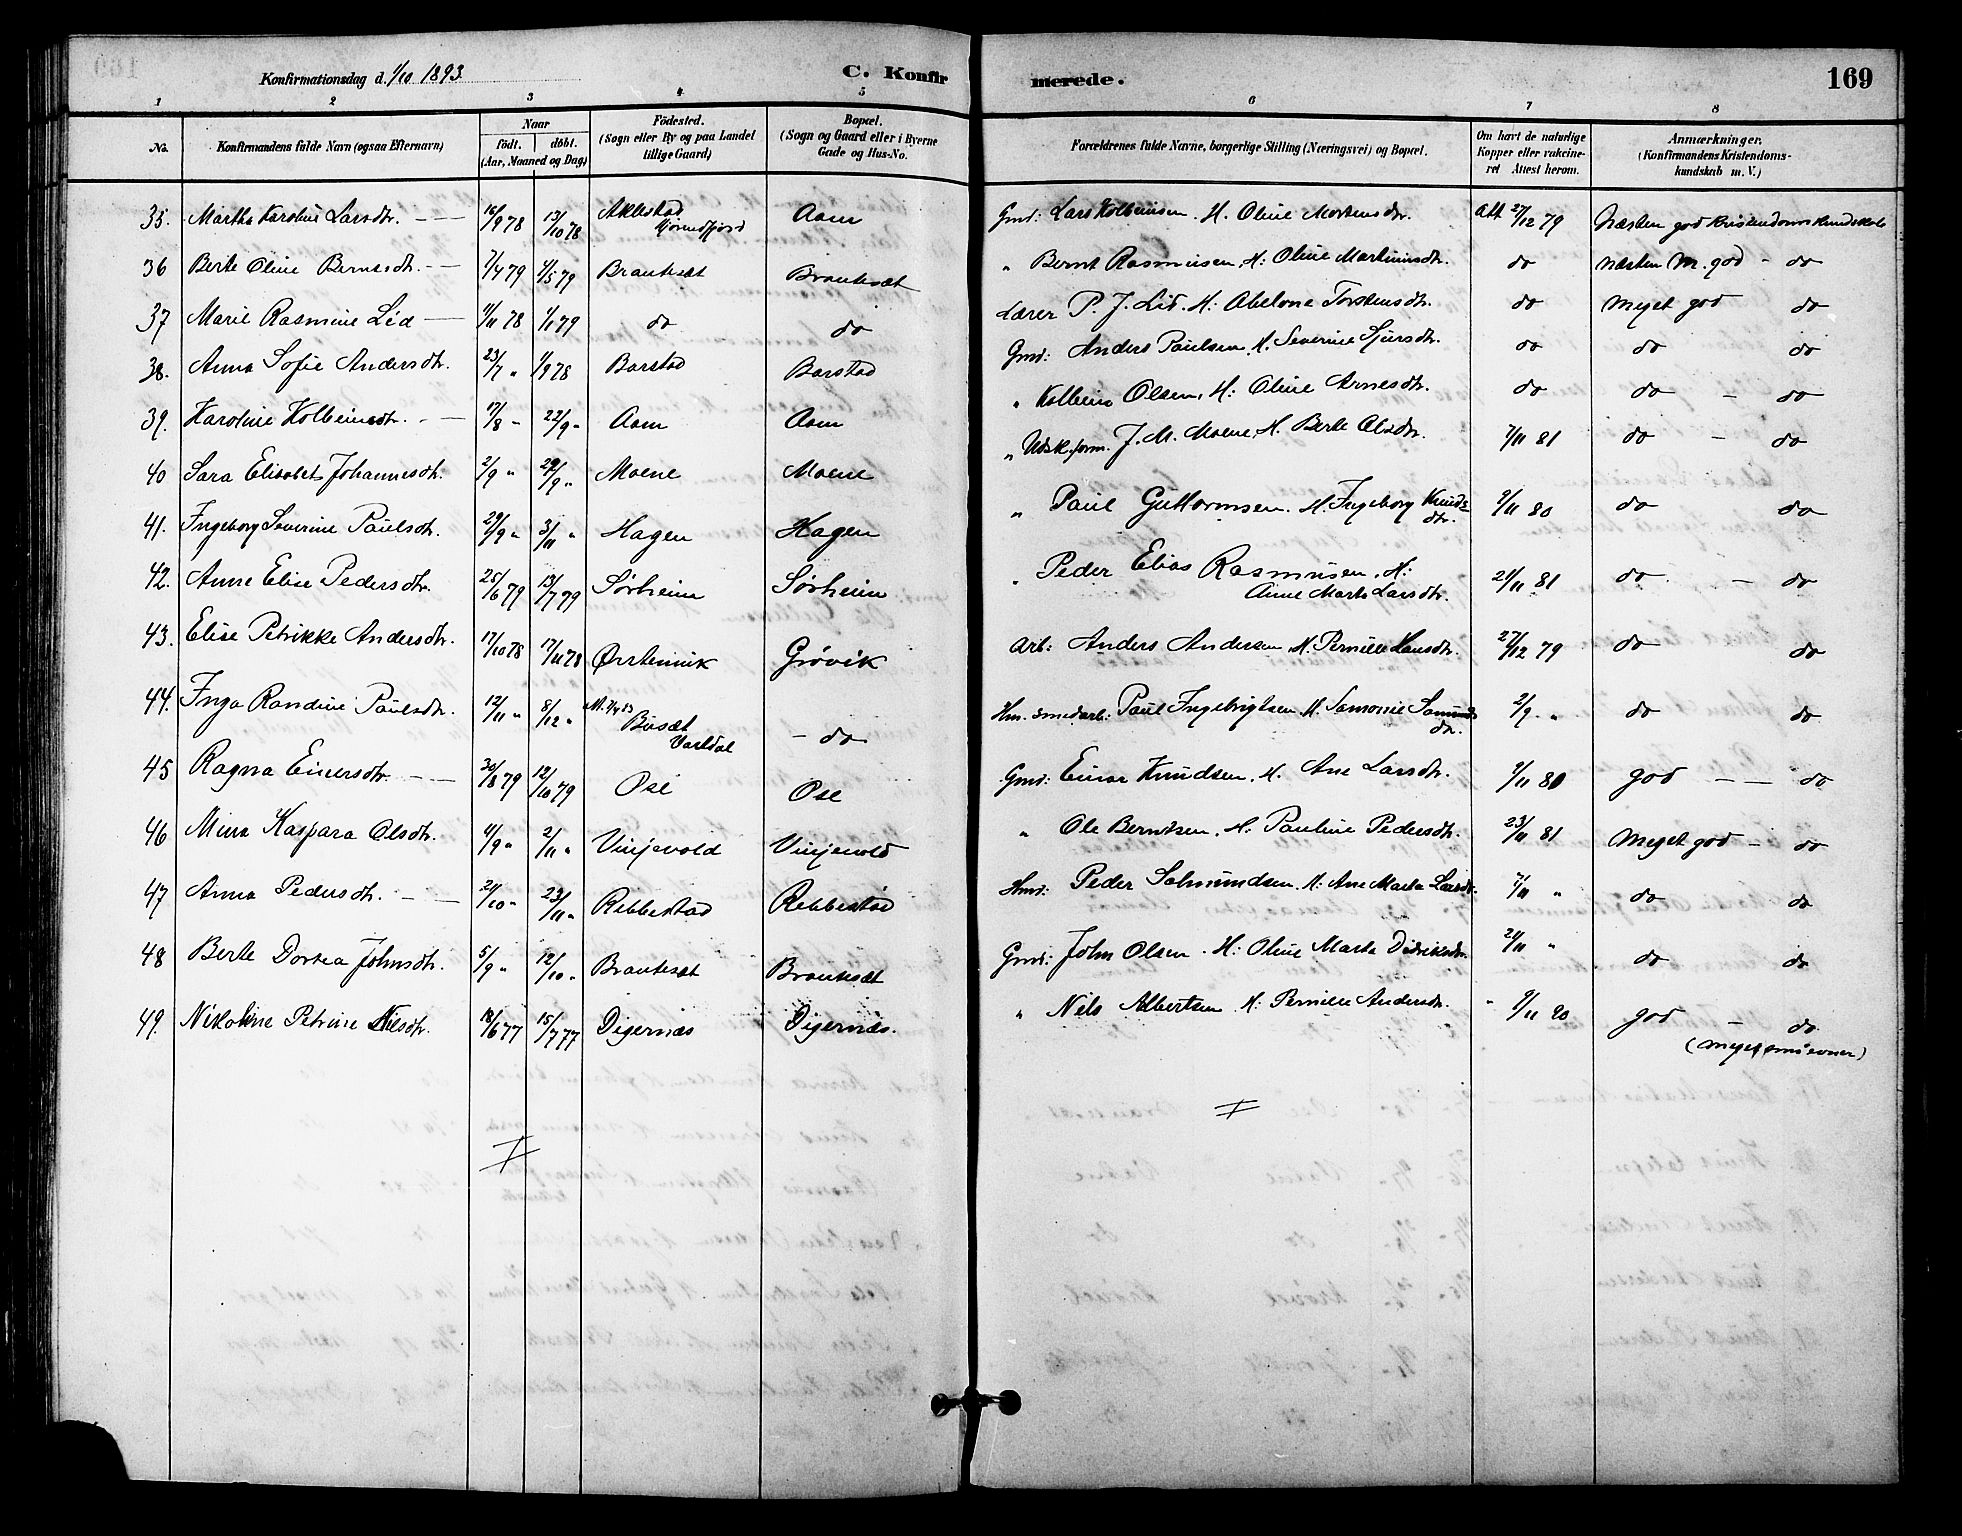 Konfirmationsdag d. 1/10 1893. C. Konfir merede. 169
1 2 3 4 5 6 7 8
No. Konfirmandens fulde Navn (ogsaa Efternavn) Naar födt. döbt. (Aar, Maaned og Dag) Födested. (Sogn eller By og paa Landet tillige Gaard) Bopæl. (Sogn og Gaard eller i Byerne Gade og Hus-No. Forældrenes fulde Navne, borgerlige Stilling (Næringsvei) og Bopæl. Om havt de naturlige Kopper eller vakcineret Attest herom. Anmærkninger. (Konfirmandens Kristendomskundskab m. V.)
35. Martha Karoline Larsdtr. 16/9 78 13/10 78 Aklestad Hjørundfjord Aam Gmd: Lars Kolbeinsen. H. Oline Mortensdtr. Att 27/12 79 Næsten god Kristendomskundskab
36 Berte Oline Berntsdtr. 7/4 79 4/5 79 Brautesæt Brautesæt " Bernt Rasmusen. H: Oline Martinusdtr. do Næsten M. god - do
37 Marie Rasmine Lid 4/11 78 1/1 79 do do Lærer P. J. Lid. H: Abelone Torstensdtr. do Meget god do
38. Anna Sofie Andersdtr. 23/7 " 1/9 78 Barstad Barstad Gmd: Anders Paulsen. H. Severine Sjursdtr. do do do
39. Karoline Kolbeinsdtr. 17/8 " 22/9 " Aam Aam " Kolbein Olsen, H: Oline Arnesdtr. do do - do
40 Sara Elisabet Johannesdtr. 2/9 " 29/9 " Moene Moene " Udsk.form. J. M. Moene. H. Berte Olsdtr. 7/11 81 do - do
41. Ingeborg Severine Paulsdtr. 29/9 " 3/11 " Hagen Hagen " Paul Guttormsen. H. Ingeborg Knudsdtr. 9/11 80 do do
42. Anne Elise Pedersdtr. 25/6 79 13/7 79 Sørheim Sørheim " Peder Elias Rasmusen. H:
Anne Marte Larsdtr. 21/11 81 do - do
43. Elise Petrikke Andersdtr. 17/10 78 17/11 78 Ørstenvik Grøvik Arb: Anders Andersen. H. Pernille Hansdtr. 27/12 79 do do
44. Inga Randine Paulsdtr. 12/11 " 8/12 " Busæt Vartdal - do Hm. smedarb: Paul Ingebrigtsen. H. Samonie Samundsdtr. 2/9 " do do
45 Ragna Einersdtr. 30/8 79 12/10 79 Ose Ose Gmd: Einar Knudsen. H. Ane Larsdtr. 9/11 80 god - - do
46 Mina Kaspara Olsdtr. 4/9 " 2/11 " Vinjevold Vinjevold " Ole Berntsen. H. Pauline Pedersdtr. 23/11 81 Meget god - do
47 Anna Pedersdtr. 21/10 " 23/11 " Ribbestad Ribbestad Hmd: Peder Salmundsen. H: Ane Marta Larsdtr. 7/11 " do do
48 Berte Dortea Johnsdtr. 5/9 " 12/10 " Brautesæt Brautesæt Gmd: John Olsen. H: Oline Marta Didriksdtr. 21/11 " do do
49. Nikoline Petrine Nilsdtr. 18/6 77 15/7 77 Digernæs Digernæs. " Nils Albertsen H: Pernille Andersdtr. 9/11 80 god - do
(meget små evner)